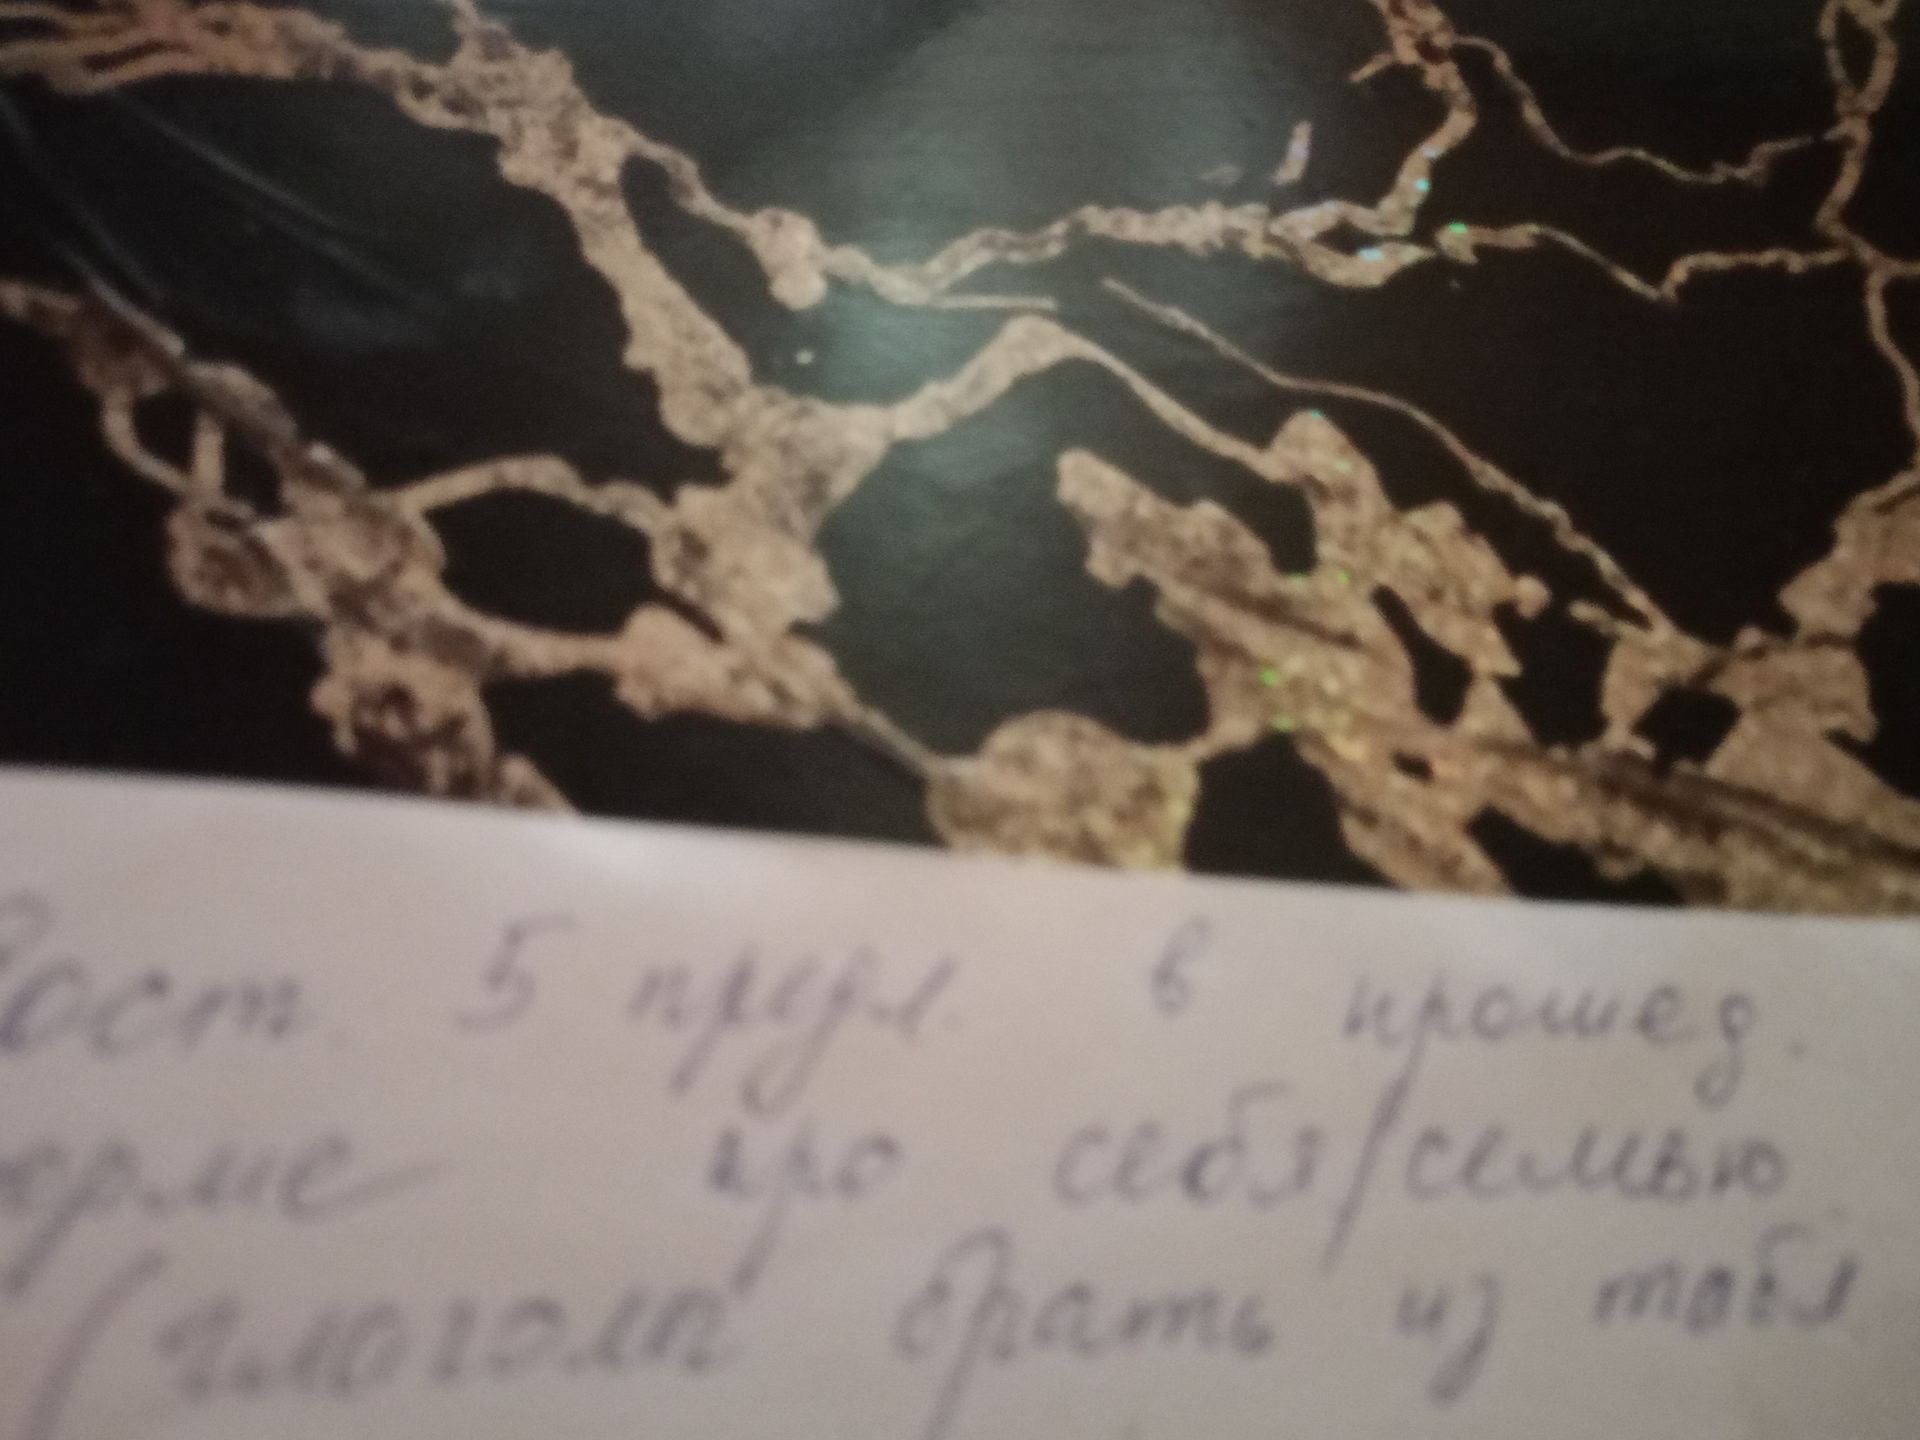 Сост. 5 предл. в прошед.
форме про себя/семью
(глагол брать из табл.